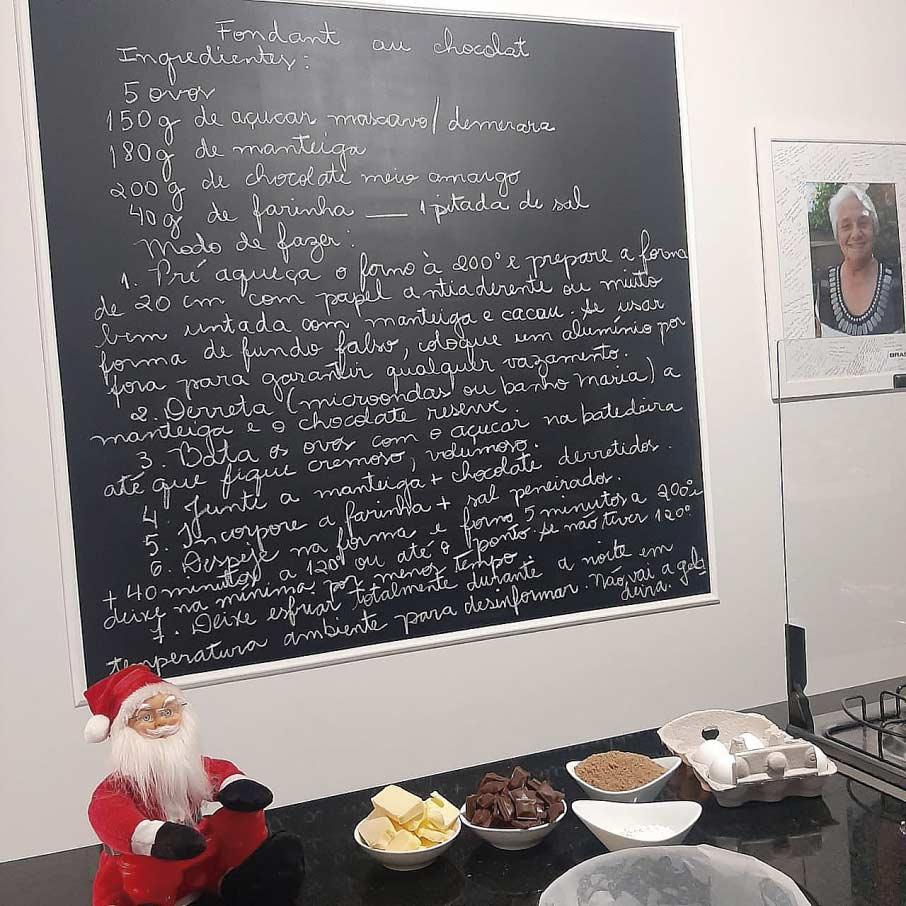 Fondant au chocolat
Ingredientes:
5 ovos
150g de açucar mascavo/demerara
180g de manteiga
200g de chocolate meio amargo
40g de farinha — 1 pitada de sal
Modo de fazer:
1. Pré aqueça o forno à 200° e prepare a forma
de 20 cm com papel antiaderente ou muito
bem untada com manteiga e cacau. Se usar
forma de fundo falso, coloque um alumínio por
fora para garantir qualquer vazamento.
2. Derreta (microondas ou banho maria) a
manteiga e o chocolate reserve.
3. Bata os ovos com o açucar na batedeira
até que fique cremoso, volumoso.
4. Junte a manteiga + chocolate derretidos.
5. Incorpore a farinha + sal peneirados.
6. Despeje na forma e forno 5 minutos a 200°
+ 40 minutos a 120° ou até o ponto. Se não tiver 120°
deixe na mínima por menos tempo
7. Deixe esfriar totalmente durante a noite em
temperatura ambiente para desinformar. Não vai a gela
deira.
BRAS